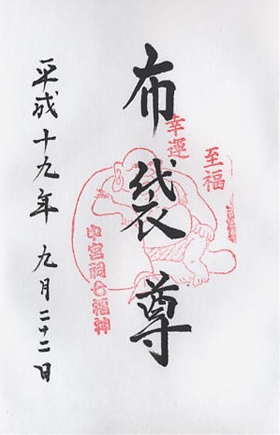 至福
幸運
布袋尊
中宮祠七福神
平成十九年 九月二十二日